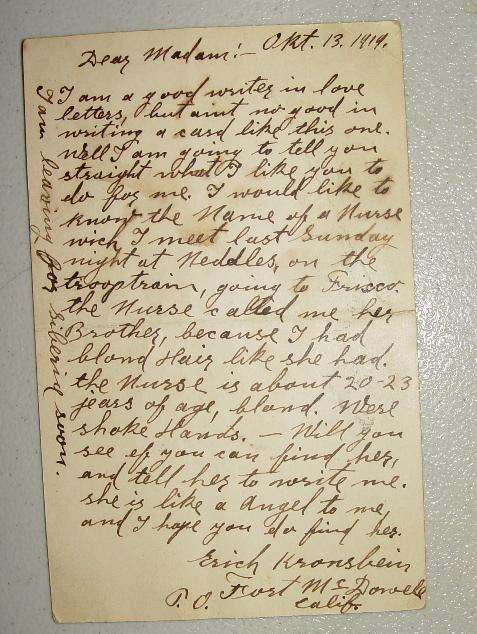 Dear Madam:- Okt. 13. 1919.
I am a good writer in love
letters, but aint no good in
writing a card like this one.
Well I am going to tell you
straight what I like you to
do for me. I would like to
know the Name of a Nurse
wich I meet last Sunday
night at Needles, on the
trooptrain, going to Frisco.
the Nurse called me her
Brother, because I had
blond Hair like she had.
the Nurse is about 20-23
jears of age, blond. Were
shoke Hands. — Will you
see ef you can find her,
and tell her to write me.
she is like a Angel to me,
and I hope you do find her.
Erich Kronsbein
P. O. Fort McDowell
Calif.
I am leaving for Siberia soon.